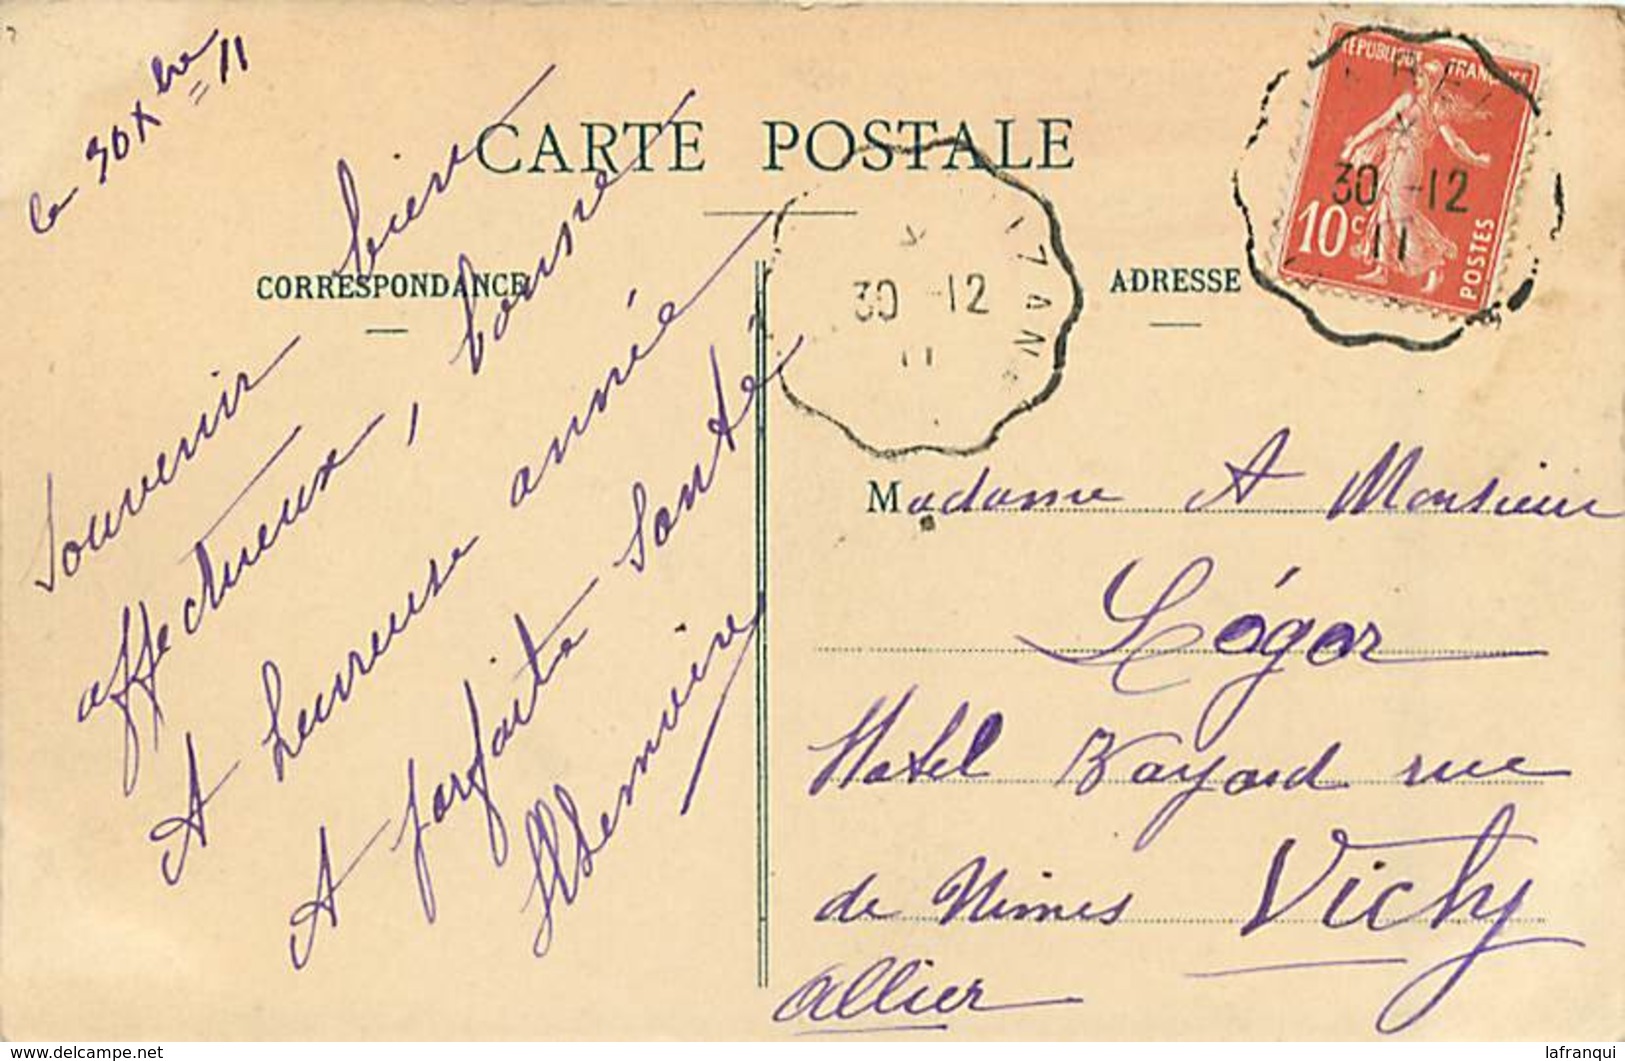 le 30 Xbre = 11
CARTE POSTALE
CORRESPONDANCE
ADRESSE
REPUBLIQUE FRANÇAISE
10c
POSTES
30 -12
11
30 -12
11
IZAN
Souvenir bien
affectueux, bonne
& heureuse année
& parfaite santé
Madame & Monsieur
Léger
Hotel Bayard rue
de Nimes Vichy
Allier
lafranqui
© Delcampe.net